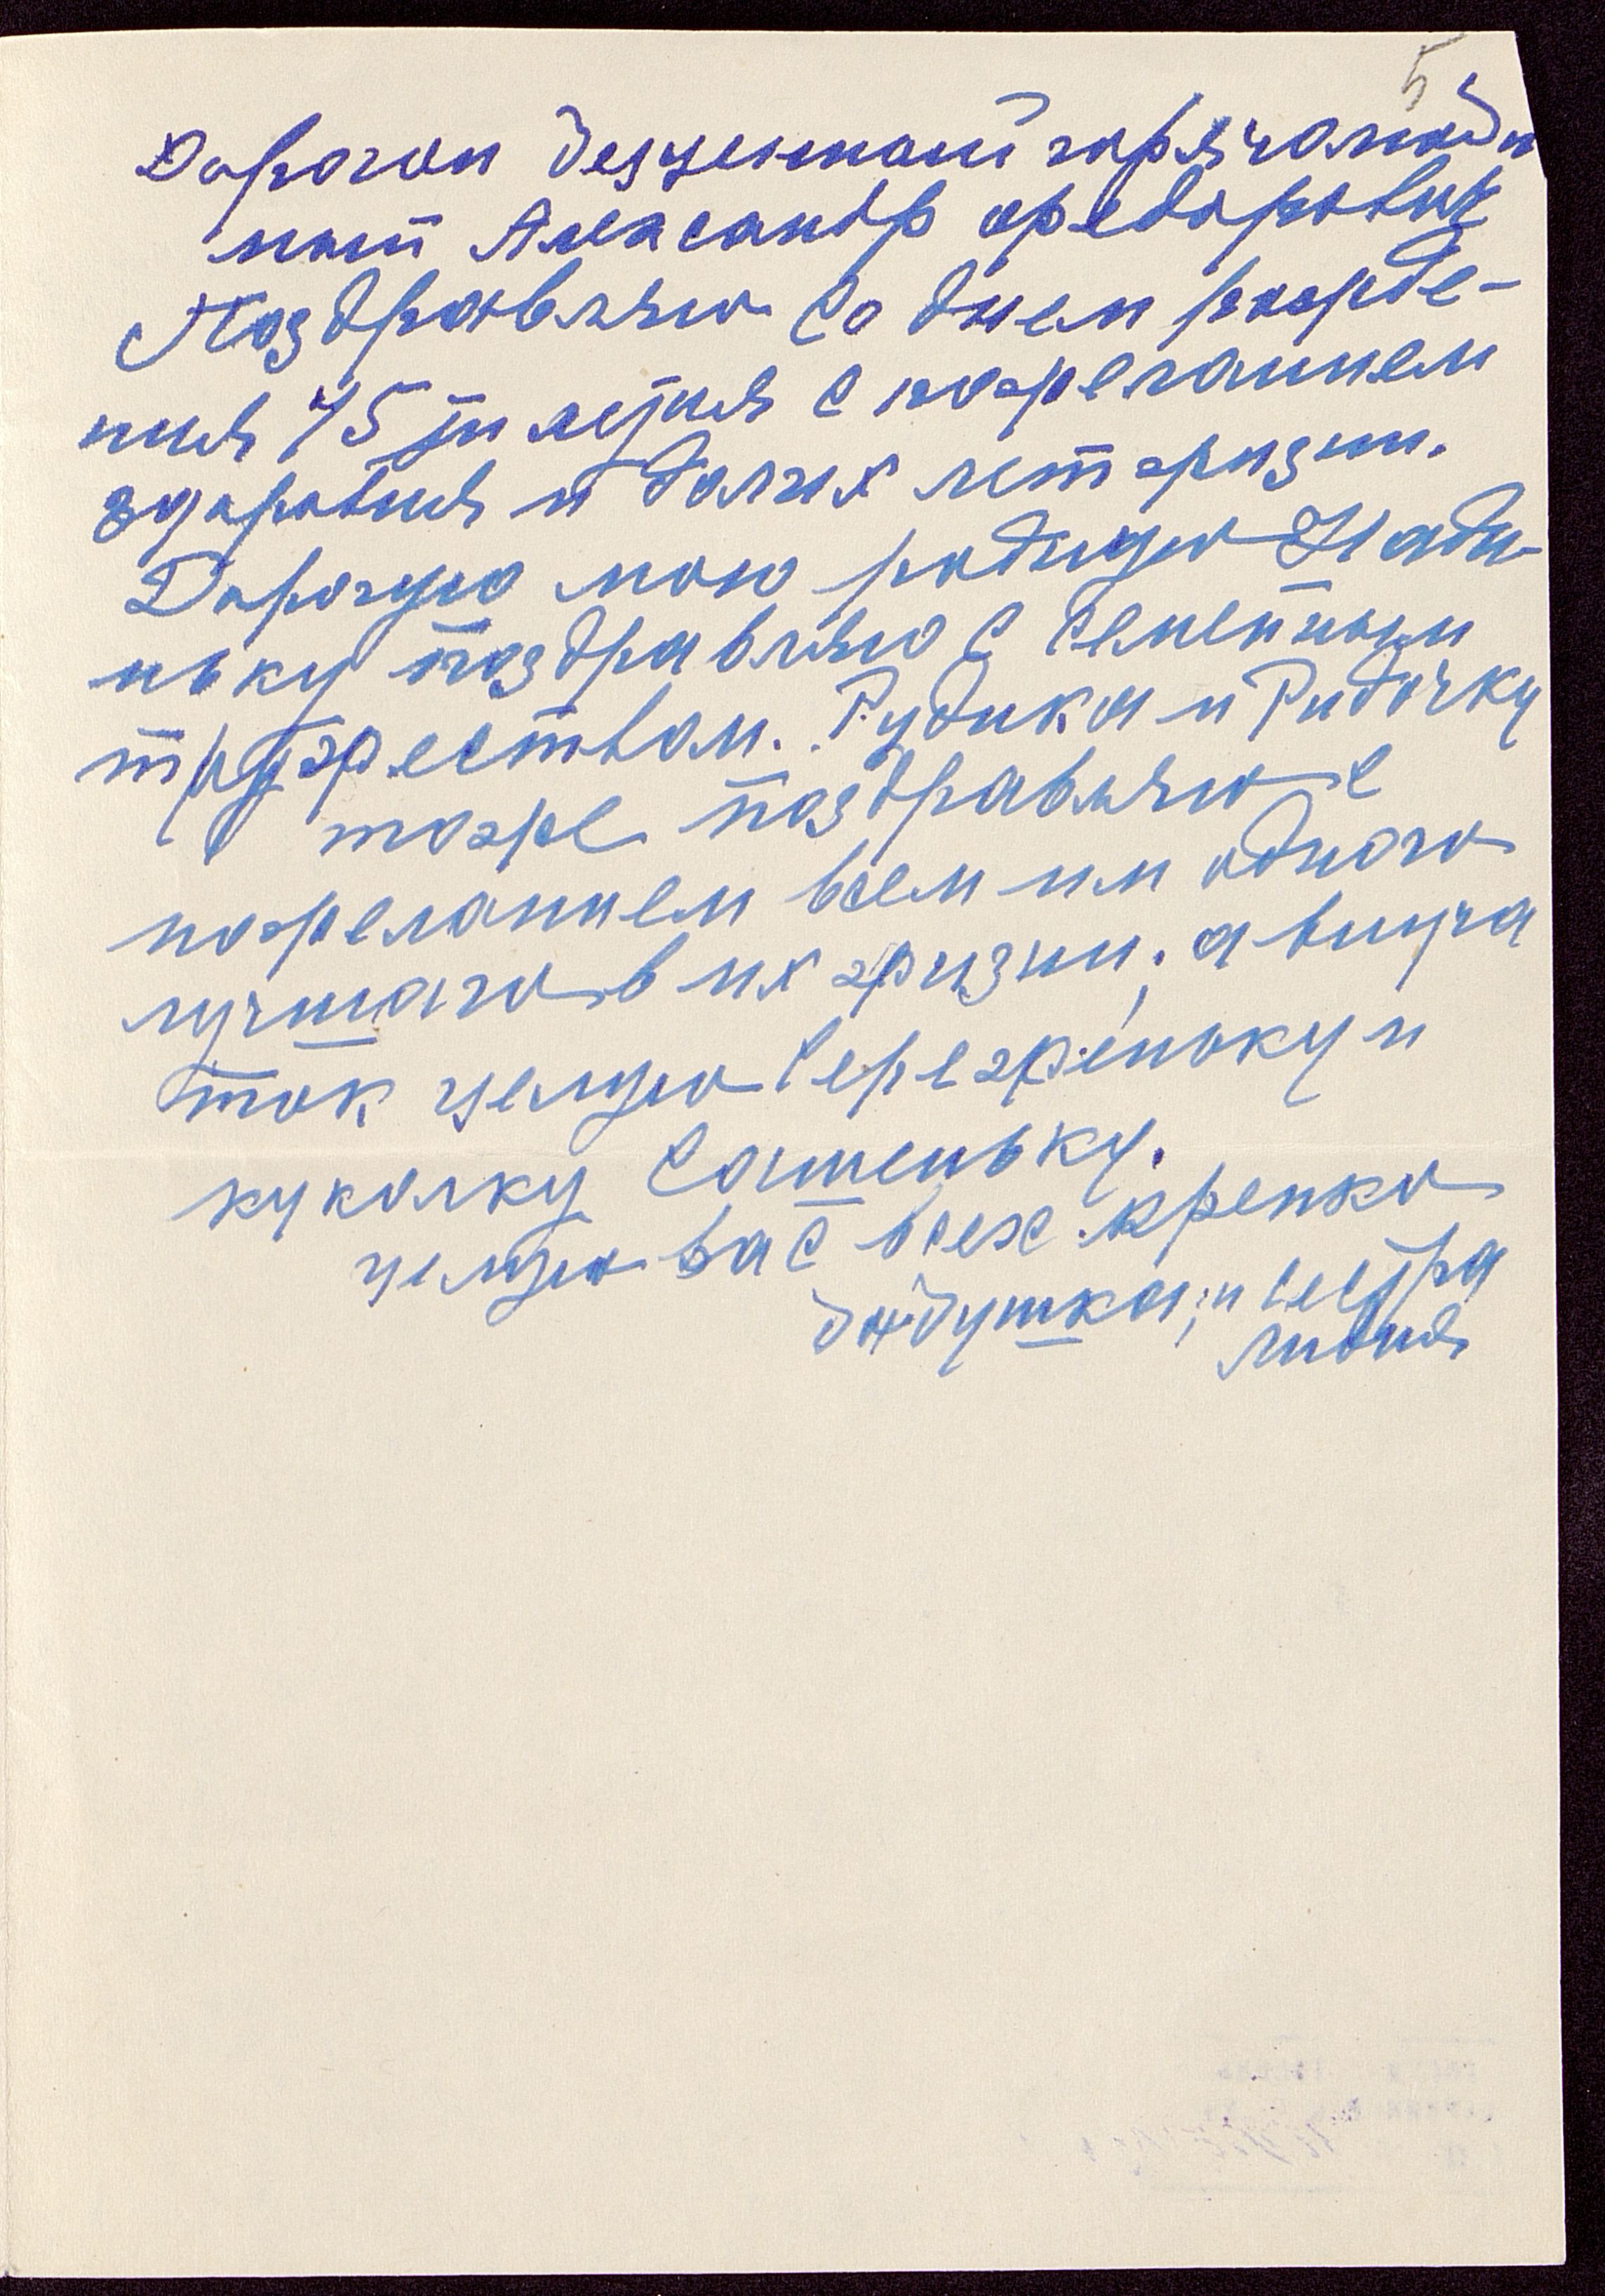 5
Дорогой безценный горячолюби
мый Александр Федорович
Поздравляю со днем рожде-
ния 75 ти летия с пожеланием
здоровия и долгих лет жизни.
Дорогую мою родную Нади
ньку поздравляю с семейным
торжеством. Рудика и Ридочку
тоже поздравляю с
пожеланием всем им одного
лучшаго в их жизни, а внуча
ток целую Сереженьку и
куколку Сашеньку.
целую вас всех крепко
бабушка, и сестра
Лидия